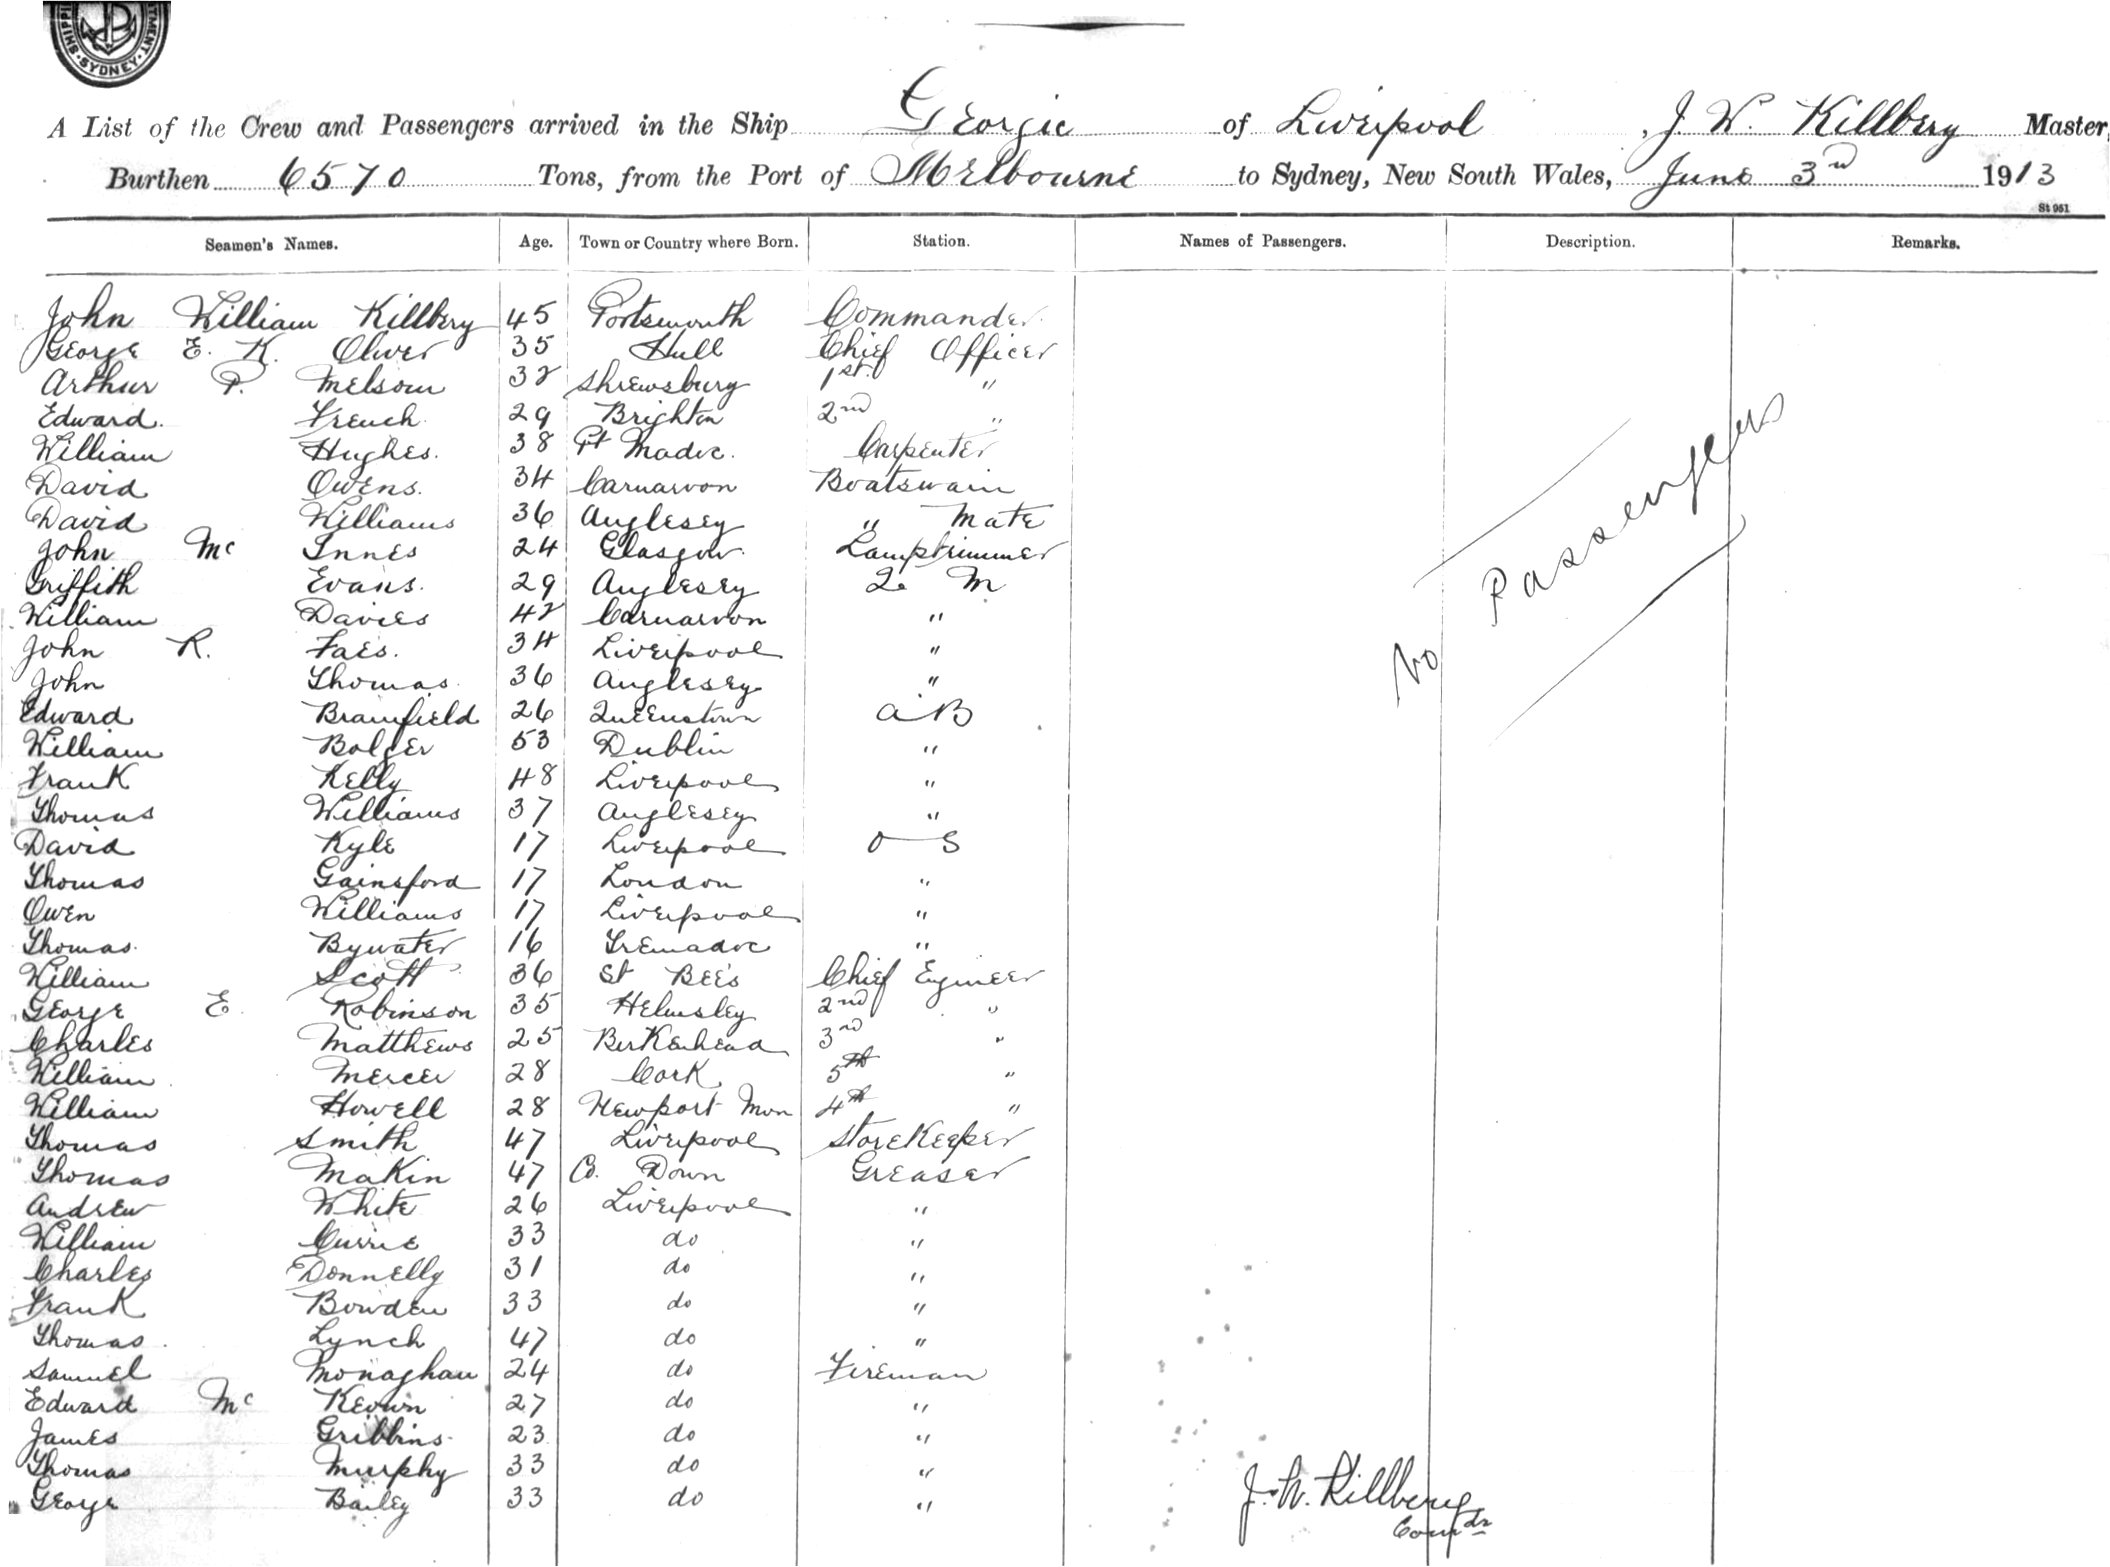 SHIPPI TMENT. SYDNEY.
A List of the Crew and Passengers arrived in the Ship Georgic of Liverpool, J. W. Killbery Master,
Burthen 6570 Tons, from the Port of Melbourne to Sydney, New South Wales, June 3rd 1913
St 951
Seamen's Names. Age. Town or Country where Born. Station. Names of Passengers. Description. Remarks.
John William Killbery 45 Portsmouth Commander.
George E. K. Oliver 35 Hull Chief Officer
Arthur P. Melsom 32 Shrewsbury 1st "
Edward. French. 29 Brighton 2nd "
William Hughes. 38 Pt Madoc. Carpenter
David Owens. 34 Carnarvon Boatswain
David Williams 36 Anglesey " Mate
John Mc Innes 24 Glasgow. Lamptrimmer
Griffith Evans. 29 Anglesey Q. M
William Davies 42 Carnarvon "
John R. Faes. 34 Liverpool "
John Thomas. 36 Anglesey "
Edward Bramfield 26 Queenstown A B
William Bolger 53 Dublin "
Frank Kelly 48 Liverpool "
Thomas Williams 37 Anglesey "
David Kyle 17 Liverpool O S
Thomas Gainsford 17 London "
Owen Williams 17 Liverpool "
Thomas. Bywater 16 Tremadoc "
William Scott 36 St Bee's Chief Engineer
George E. Robinson 35 Helmsley 2nd "
Charles Matthews 25 Birkenhead 3rd "
William Mercer 28 Cork 5th "
William Howell 28 Newport Mon 4th "
Thomas Smith 47 Liverpool Storekeeper
Thomas Makin 47 Co. Down Greaser
Andrew White 26 Liverpool "
William Currie 33 do "
Charles Donnelly 31 do "
Frank Bowden 33 do "
Thomas. Lynch 47 do "
Samuel Monaghan 24 do Fireman
Edward Mc Keown 27 do "
James Gribbins. 23 do "
Thomas Murphy 33 do "
George Bailey 33 do "
No Passengers
J. W. Killbery
Comdr